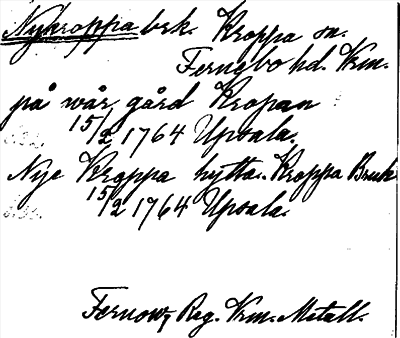 Nykroppa brk. Kroppa sn.
Fernebo hd. Vrm.
på wår gård Kropan
15/2 1764 Upsala.
Nye Kroppa hytta. Kroppa Bruk
15/2 1764 Upsala.
Fernow, Reg. Vrm. Metall.